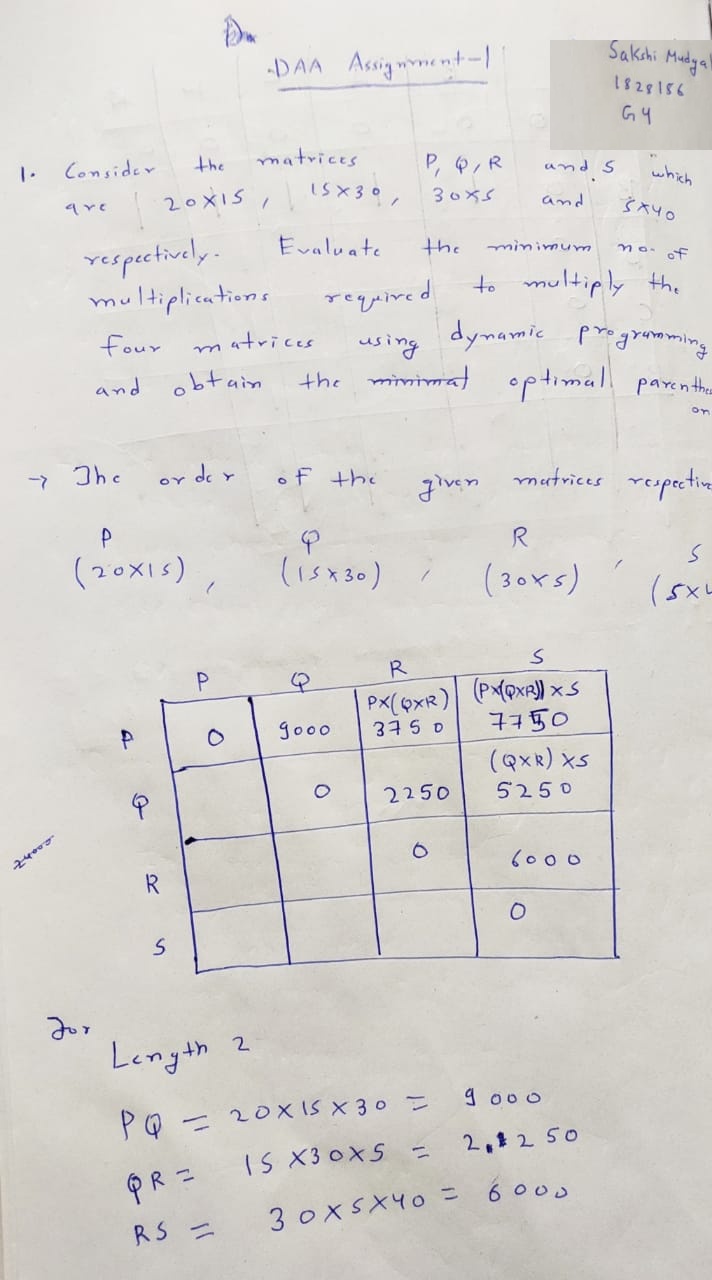 DAA Assignment-1
Sakshi Mudgal
1828156
G4
1. Consider the matrices P, Q, R and S which
are 20X15, 15X30, 30X5 and 5X40
respectively. Evaluate the minimum no. of
multiplications required to multiply the
four matrices using dynamic programming
and obtain the minimal optimal parenthes
on
→ The order of the given matrices respective
P Q R S
(20X15), (15X30), (30X5), (5X4
P Q R S
PX(QXR) (PX(QXR)) XS
P 0 9000 3750 7750
(QXR) XS
Q 0 2250 5250
24000
R 0 6000
S 0
For
Length 2
PQ = 20X15X30 = 9000
QR = 15X30X5 = 2250
RS = 30X5X40 = 6000